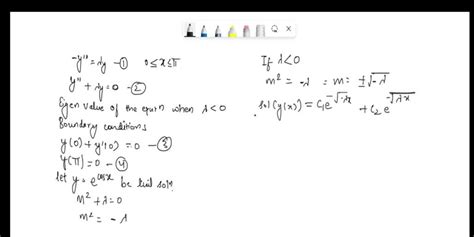 -y'' = λy — ① 0 ≤ x ≤ π
y'' + λy = 0 — ②
Eigen value of the equn when λ < 0
Boundary conditions
y(0) + y'(0) = 0 — ③
y(π) = 0 — ④
let y = e^{cosx} be trial soln
m² + λ = 0
m² = -λ
If λ < 0
m² = -λ = m = ±√-λ
sol(y(x)) = C₁e^{-√-λx} + C₂e^{-√λx}